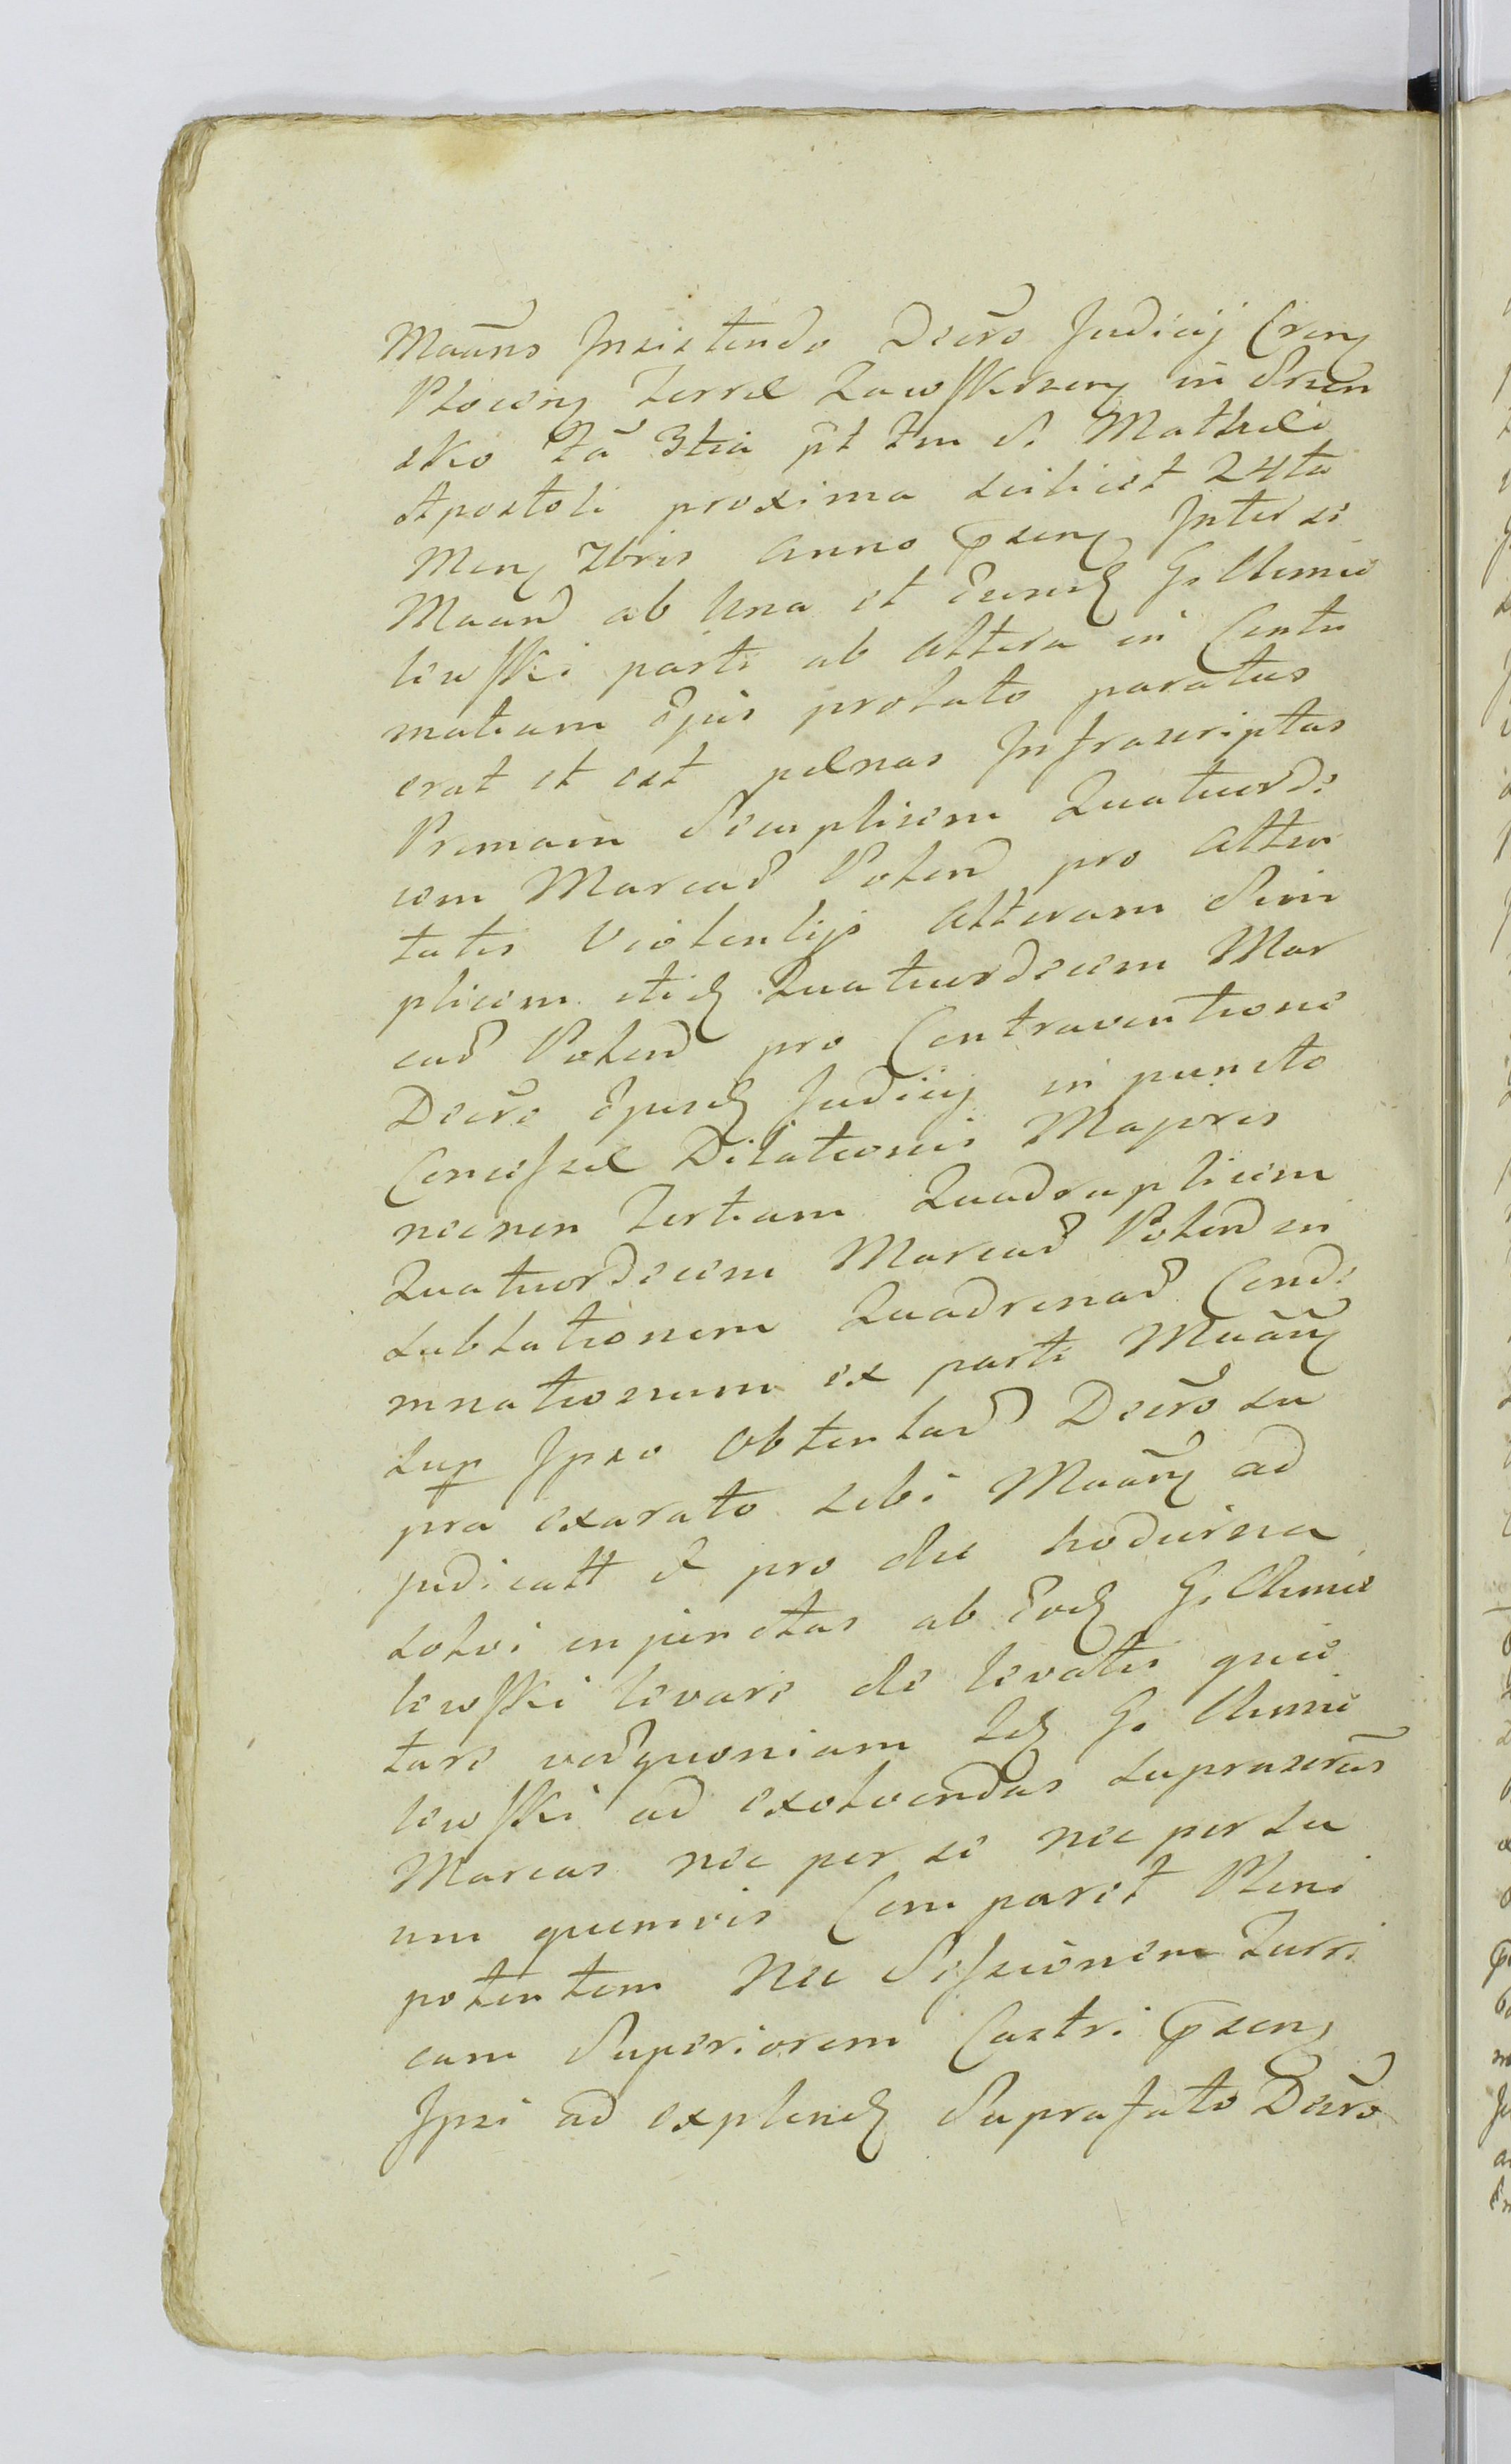 Maãns Insistendo Decro Judicij Cren
Plocen Terræ Zawskrzen in Szren
sko fã 3tia pt fm S. Mathæi
Apostoli proxima scilicet 24ta
Men 7bris Anno Prsen Inter se
Maand ab Una et Eund G. Chmie
lewski parte ab Altera in Contu
matiam Ejus prolato paratus
erat et est pœnas Infrascriptas
Primam Simplicem Quatuorde
cem Marcar Polond pro Atten
tatis Violentijs Alteram Sim
plicem itid Quatuordecem Mar
car Polond pro Contraventione
Decro Ejusd Judicij in puncto
Concessæ Dilationis Majoris
necnon Tertiam Quadruplicem
Quatuordecem Marcar Polond in
sublationem Quadrinar Conde
mnationum ex parte Maãn
sup Ipso Obtentar Decro su
pra exarato sibi Maãn ad
judicatt & pro die hodierna
solvi injunctas ab Eod G. Chmie
lewski levare de levatis quie
tare verquoniam Id G. Chmie
lewski ad exolvendas suprascrãs
Marcas nec per se nec per su
um quemvis Comparet Pleni
potentem Nec Sessionem Turri
cam Superiorem Castri Prsen
Ipsi ad explend Suprafato Decro